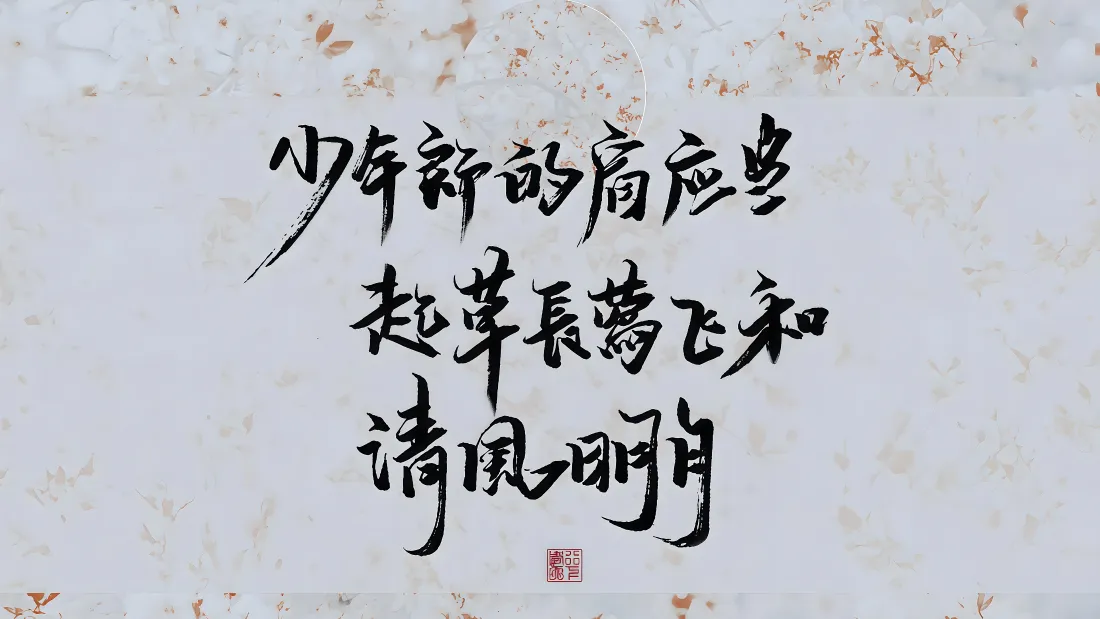 少年郎的肩应
起草長鶯飞和
清風明月